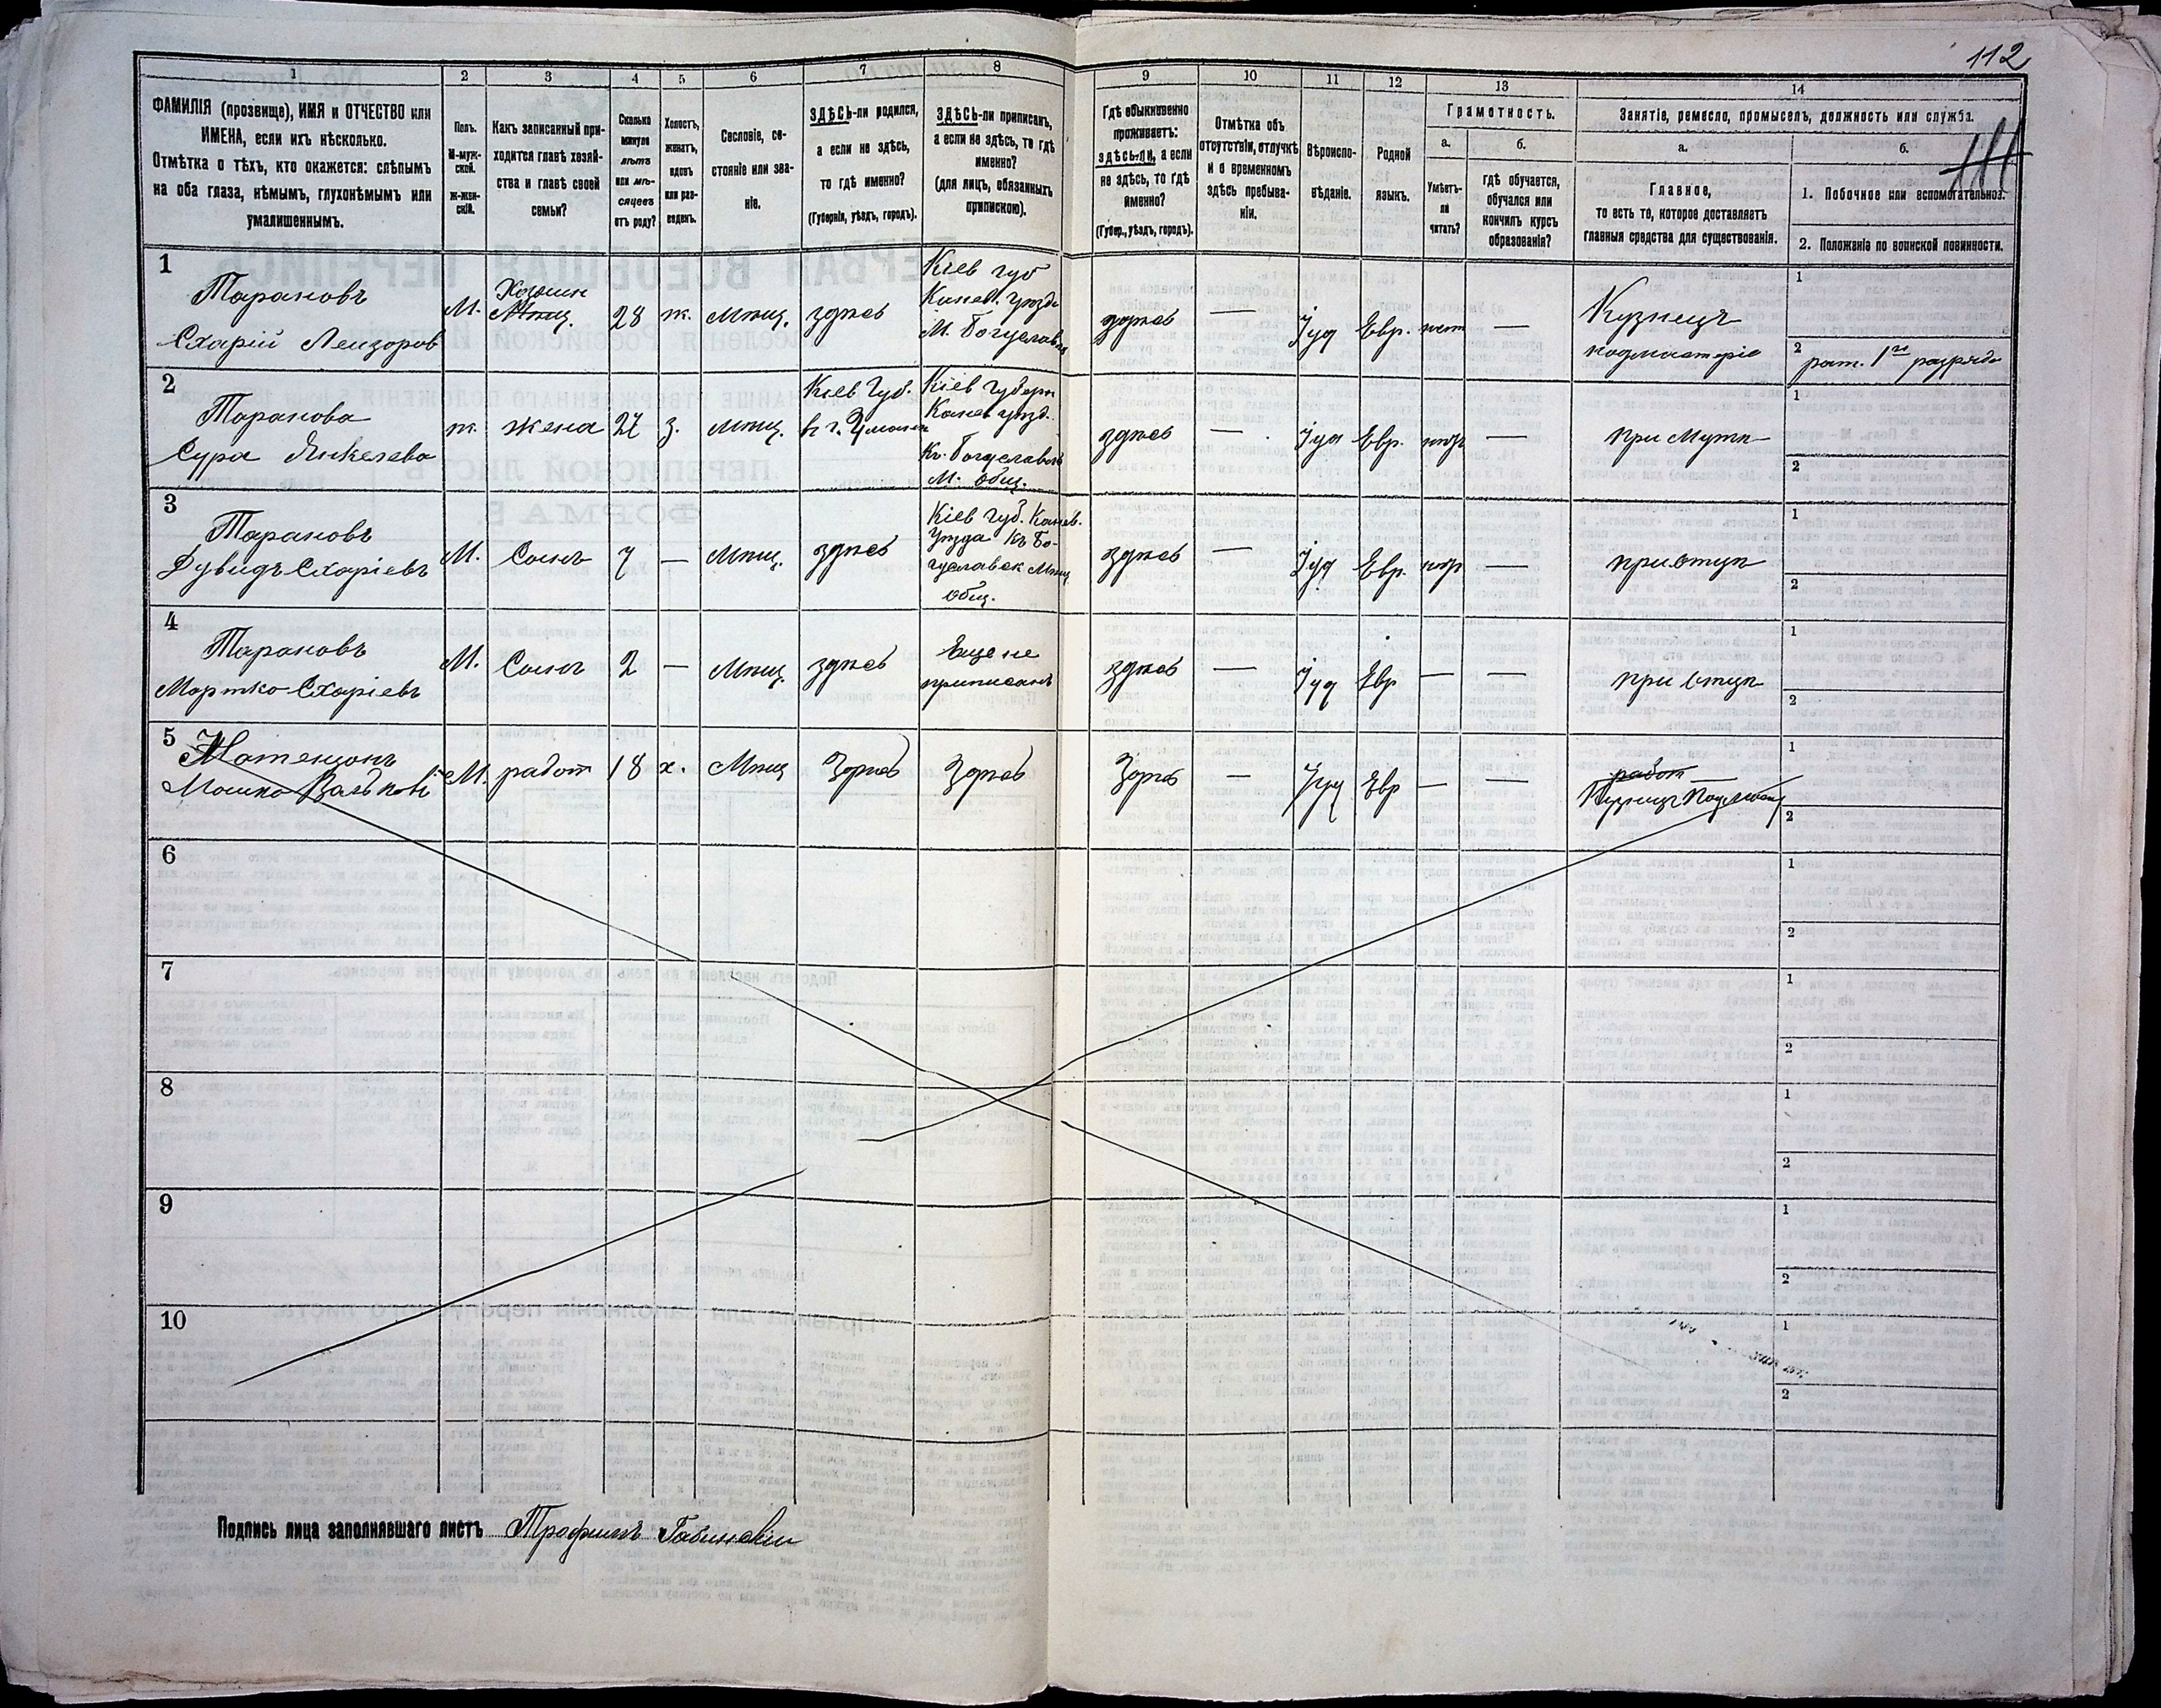 112
111
1
2
3
4
5
6
7
8
9
10
11
12
13
14
ФАМИЛІЯ (прозвище), ИМЯ и ОТЧЕСТВО или
ИМЕНА, если ихъ нѣсколько.
Отмѣтка о тѣхъ, кто окажется: слѣпымъ
на оба глаза, нѣмымъ, глухонѣмымъ или
умалишеннымъ.
Полъ.
М-муж-
ской.
ж-жен-
скій.
Какъ записанный при-
ходится главѣ хозяй-
ства и главѣ своей
семьи?
Сколько
минуло
лѣтъ
или мѣ-
сяцевъ
отъ роду?
Холостъ,
женатъ,
вдовъ
или раз-
веденъ.
Сословіе, со-
стояніе или зва-
ніе.
ЗДѢСЬ-ли родился,
а если не здѣсь,
то гдѣ именно?
(Губернія, уѣздъ, городъ).
ЗДѢСЬ-ли приписанъ,
а если не здѣсь, то гдѣ
именно?
(для лицъ, обязанныхъ
припискою).
Гдѣ обыкновенно
проживаетъ:
здѣсь-ли, а если
не здѣсь, то гдѣ
именно?
(Губер., уѣздъ, городъ).
Отмѣтка объ
отсутствіи, отлучкѣ
и о временномъ
здѣсь пребыва-
ніи.
Вѣроиспо-
вѣданіе.
Родной
языкъ.
Грамотность.
а.
Умѣетъ-
ли
читать?
б.
гдѣ обучается,
обучался или
кончилъ курсъ
образованія?
Занятіе, ремесло, промыселъ, должность или служба.
а.
Главное,
то есть то, которое доставляетъ
главныя средства для существованія.
б.
1. Побочное или вспомогательное.
2. Положеніе по воинской повинности.
1
Тарановъ
Схарій Лейзоров
М.
Хозяин
Мѣщ.
28
ж.
Мѣщ.
здѣсь
Кіев губ
Канев. уѣзда
М. Богуслав
здѣсь
—
Іуд
Евр.
нѣт
—
Кузнецъ
подмастеріе
1
2
рат. 1го разряда
2
Таранова
Сура Янкелева
ж.
жена
27
з.
мѣщ.
Кіев Губ.
в г. Умани
Кіев Губерн
Канев уѣзд.
Къ Богуславск
М. общ.
здѣсь
—
Іуд
Евр.
—
при мужѣ
1
2
3
Тарановъ
Дувидъ Схаріевъ
М.
Сынъ
7
—
Мѣщ.
здѣсь
Кіев Губ. Канев.
Уѣзда Къ Бо-
гуславск Мѣщ
Общ.
здѣсь
—
Іуд
Евр.
—
при отцѣ
1
2
4
Тарановъ
Мортко Схаріевъ
М.
Сынъ
2
—
Мѣщ.
здѣсь
Еще не
приписанъ
здѣсь
—
Іуд
Евр
—
—
при отцѣ
1
2
5
Мошко
М.
работ
18
х.
Мѣщ
Здѣсь
Здѣсь
Здѣсь
—
Іуд
Евр
—
—
работ
Кузнецъ
1
2
6
1
2
7
1
2
8
1
2
9
1
2
10
1
2
Подпись лица заполнявшаго листъ Трофимъ